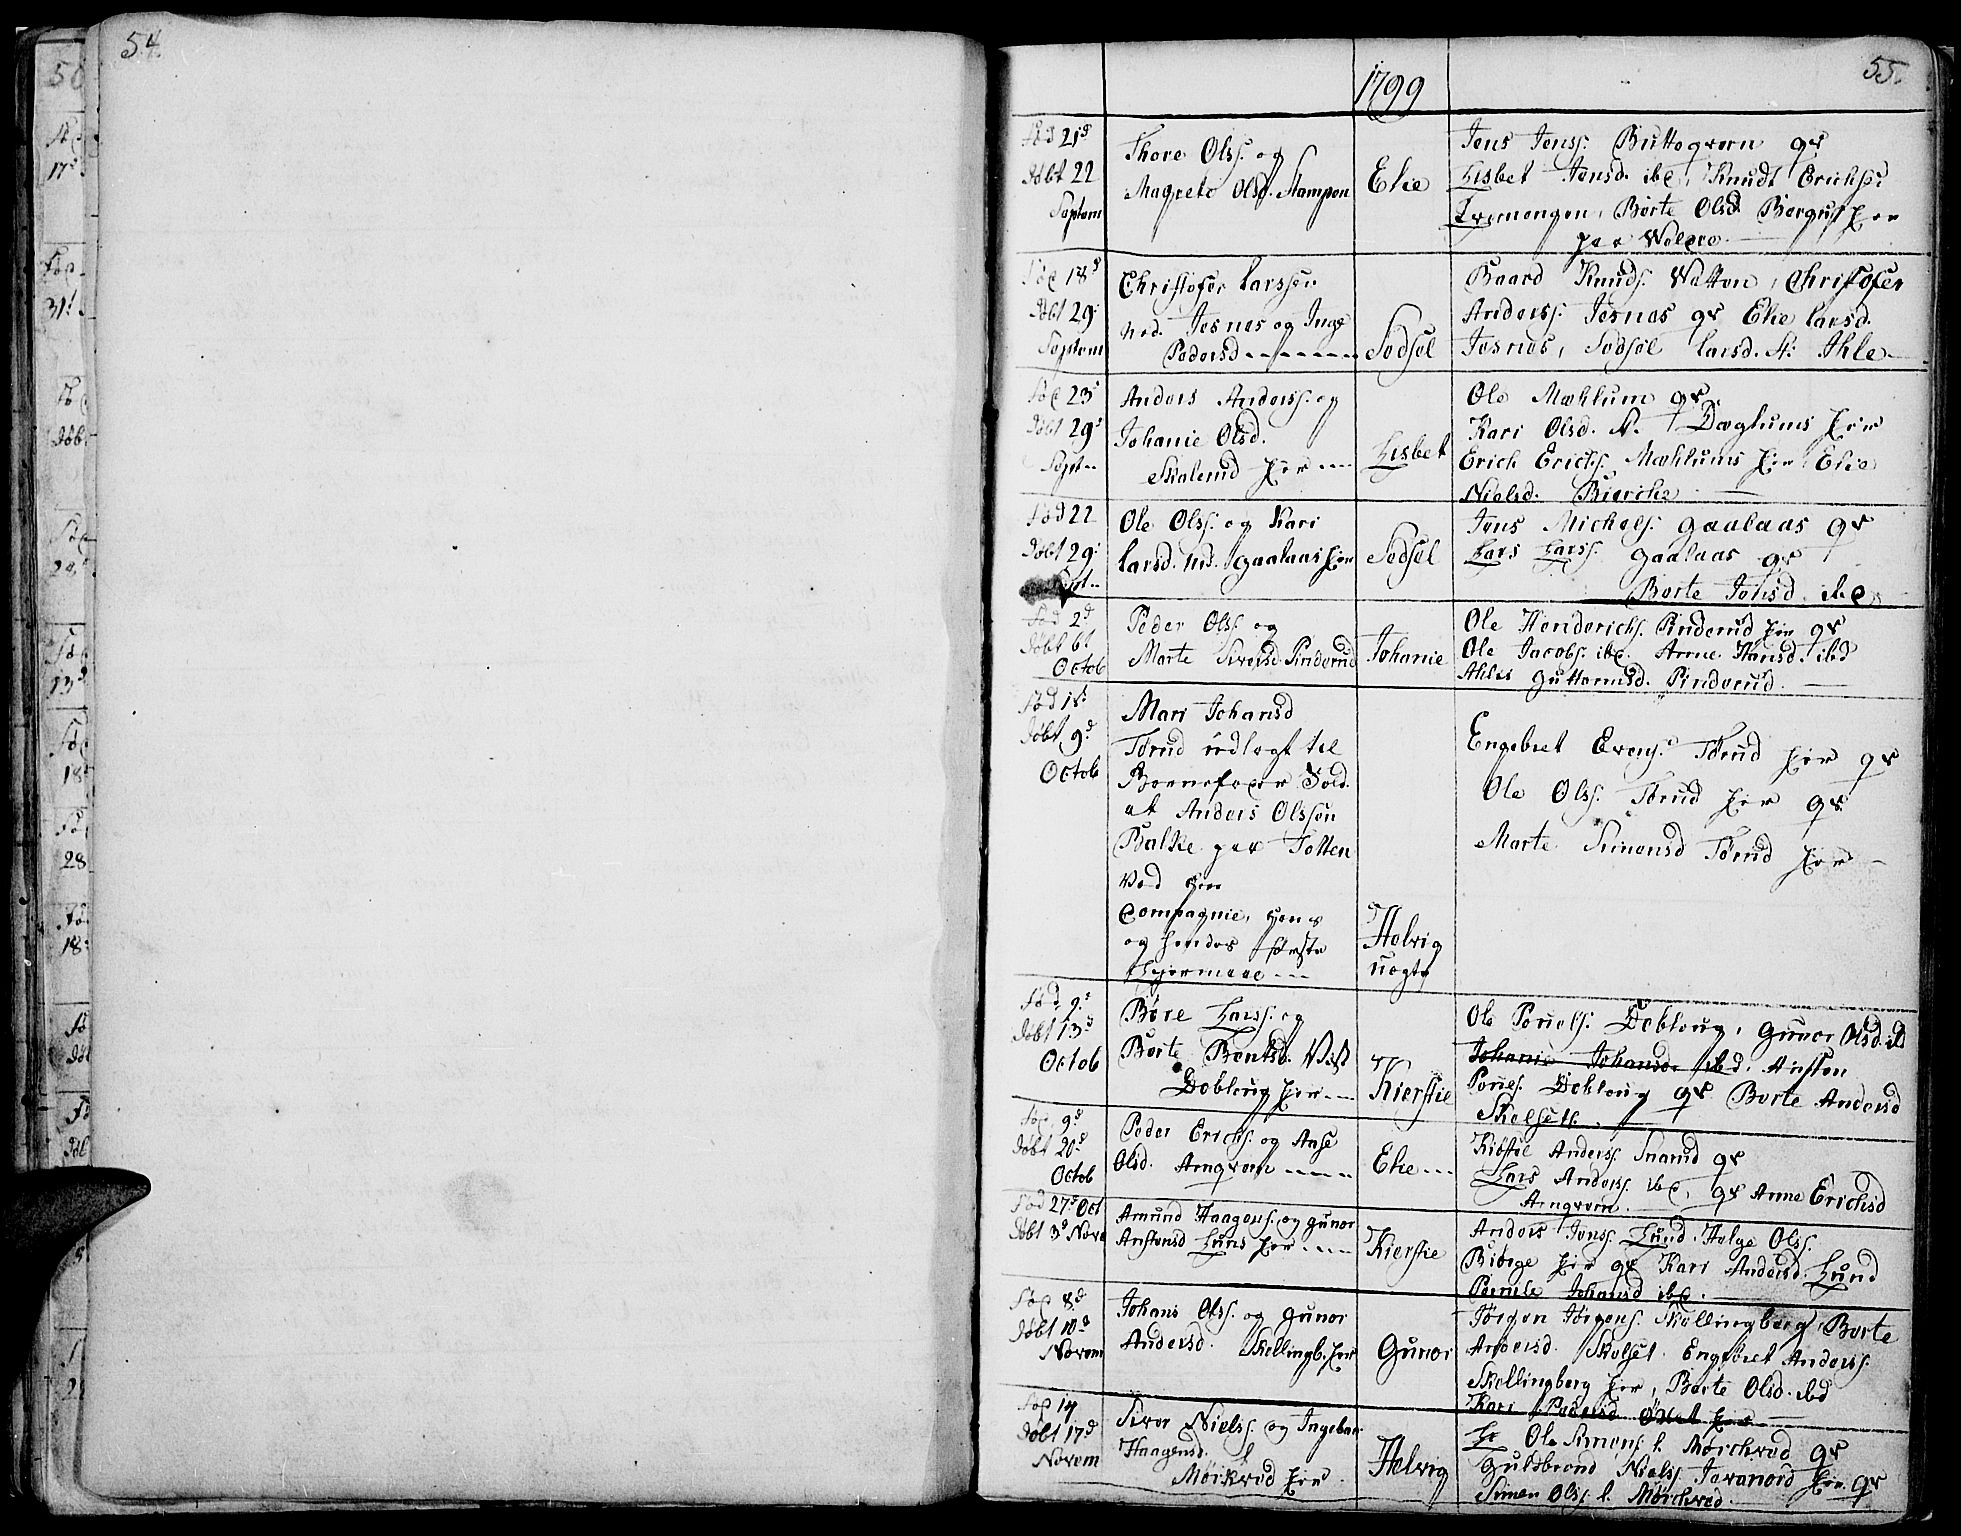 54.
55.
1799
Fød 21d
døbt 22
Septem
Thore Olss. og
Magrete Olsd. Stampen
Elie
Jens Jenss. Butteqvern gr
Lisbet Jensd. ibd, Knudt Erichss:
Qvernengen, Børte Olsd. Bergus her
Fød 18d
døbt 29.
Septem
Christofer Larssen
Ned. Jesnes og Inge
Pedersd
Sødsel
Baard Knuds. Watten, Christofer
Anderss. Jesnes gr Elie Larsd.
Jesnes, Sødsel Larsd. St: Ihle
Fød 23d
døbt 29d
Sept
Anders Anderss. og
Johanie Olsd.
Skalerud her
Lisbet
Ole Mæhlum gr
Kari Olsd. N. Dæglums her
Erich Erichs. Mæhlums her Elie
Nielsd. Biercke
Fød 22
døbt 29.
Sept
Ole Olss. og Kari
Larsd. Nd. Gaalaas her
Sødsel
Jens Michels. Gaalaas gr
Lars Larss. Gaalaas gr
Børte Jensd. ibd
Fød 2d
døbt 6t
Octob
Peder Olss og
Marte Siversd Pinderud
Johanie
Ole Henderichs. Pinderud her gr
Ole Jacobs. ibd. Anne Hansd. ibd
Ahlis Guttormsd. Pinderud.
Fød 1st
døbt 9d
Octob
Mari Johansd
Tørud udlagt til
Barnefader Sold.
at Anders Olssen
Balke paa Totten
Ved
Compagnie, hans
og hendes første
Leiermaal
Helvig
uægte
Engebret Evens. Tørud her gr
Ole Olss. Tørud her gr
Marte Simensd Tørud her
Fød 9d
døbt 13d
Octob
Børe Larss. og
Børte Bentsd. Vest
Dobloug her
Kierstie
Ole Povels. Dobloug, Gunor Olsd. ibd
Johanie Johansd. ibd. Ansten
Povels. Dobloug gr Børte Andersd
Skolset.
Fød 9d
døbt 20d
Octob
Peder Erichs. og Aase
Olsd. Arnqvern
Elie
Kiøstel Anderss. Snarud gr
Lars Anderss. ibd, gr Anne Erichsd
Arnqvern.
Fød 27d Oct
døbt 3d Nove
Amund Haagens. og Gunor
Anstensd Luns her
Kierstie
Anders Jenss. Lund, Helge Olss.
Biørge her gr Kari Andersd. Lund
Pernile Johansd ibd.
Fød 8d
døbt 10d
Novem
Johans Olss. og Gunor
Andersd. Skellingb. her
Gunor
Jørgen Jørgens. Skellingberg, Børte
Andersd. Skolset. Engebret Anderss.
Skellingberg her, Børte Olsd. ibd
Kari Pedersd Ødet her
Fød 14
døbt 17d
Novem
Siver Nielss. og Ingebor
Haagensd. l.
Mørkved her
Helvig
Ole Simens l. Mørchved gr
Guldbrand Nielss. her gr
Simen Olss l. Mørchved.